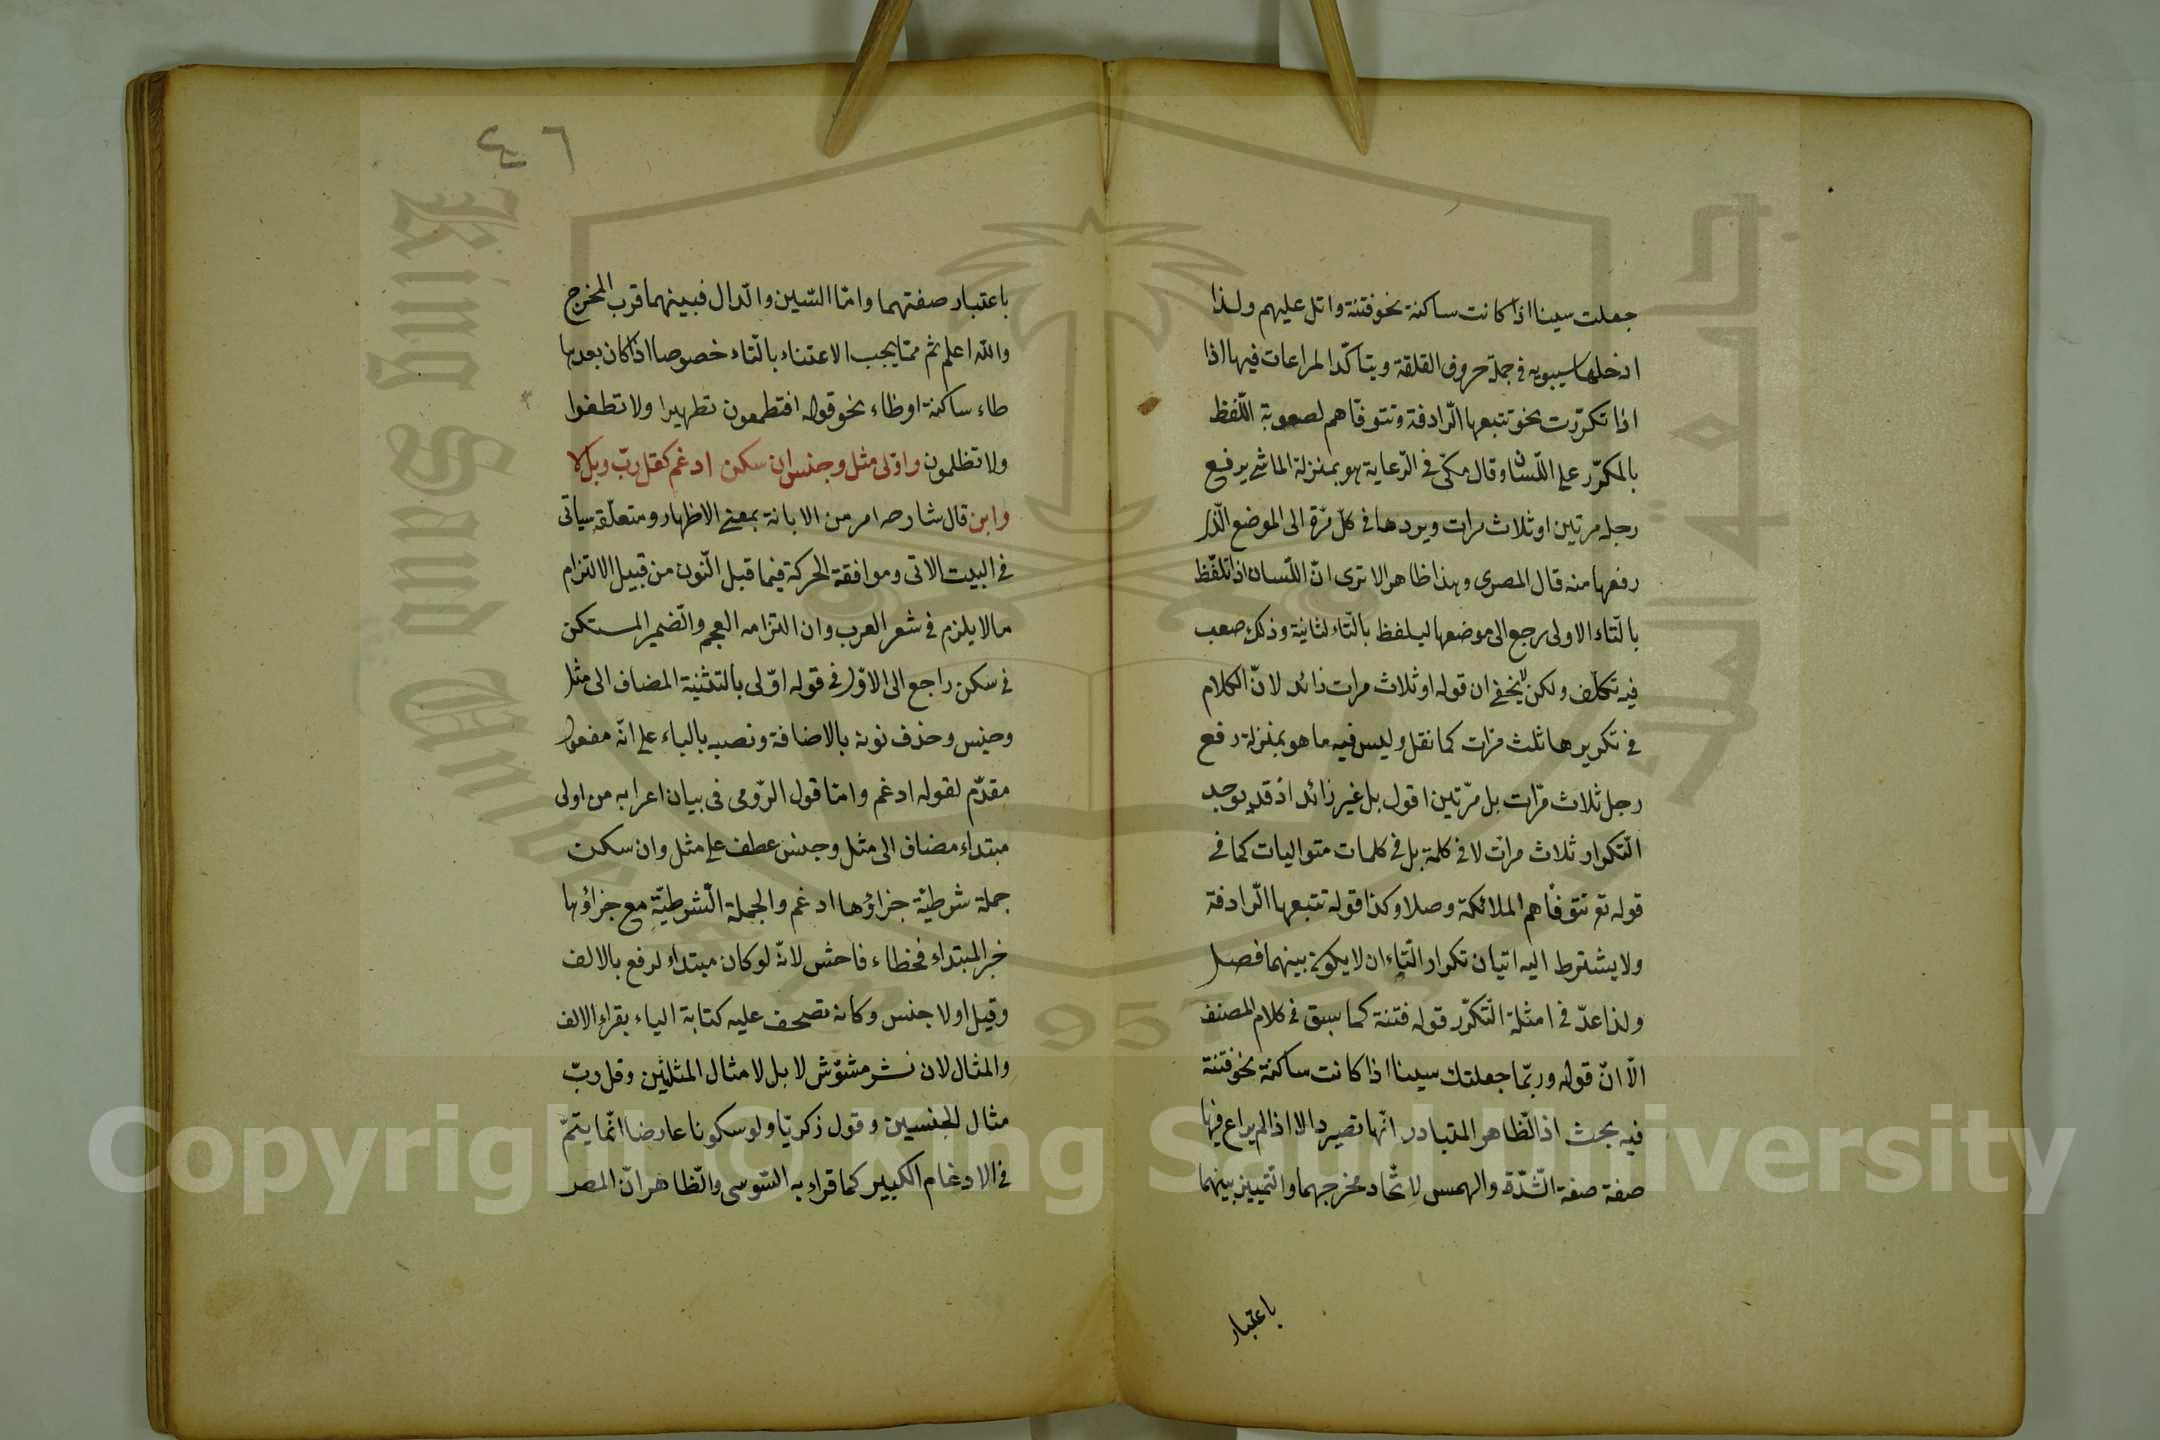 جعلت سينا اذا كانت ساكنة نحو فتنة واتل عليهم ولذا
ادخلها سيبويه فى جملة حروف القلقة ويتأكّد المراعات فيها اذا
اذا تكرّرت نحو تتبعها الرّادفة وتتوفّاهم لصعوبة اللّفظ
بالمكرّر على اللّسان وقال مكّى فى الرّعاية هو بمنزلة الماشى يرفع
رجله مرتين او ثلاث مرات ويردها فى كلّ مرّة الى الموضع الّذى
رفعها منه قال المصرى وهذا ظاهر الا ترى انّ اللّسان اذا تلفّظ
بالتّاء الاولى رجع الى موضعها ليلفظ بالتّاء لثانية وذلك صعب
فيه تكلّف ولكن لا يخفى ان قوله او ثلاث مرات زائد لانّ الكلام
فى تكريرها ثلث مرّات كما نقل وليس فيه ما هو بمنزلة رفع
رجل ثلاث مرّات بل مرّتين اقول بل غير زائد اذ قد يوجد
التّكرار ثلاث مرات لا فى كلمة بل فى كلمات متواليات كما فى
قوله تع تتوفّاهم الملائكة وصلا وكذا قوله تتبعها الرّادفة
ولا يشترط اليه اتيان تكرار التّاء ان لا يكون بينهما فصل
ولذا عدّ فى امثلة التّكرّر قوله فتنة كما سبق فى كلام المصنف
الّا انّ قوله وربّما جعلتك سينا اذا كانت ساكنة نحو فتنة
فيه بحث اذ الظّاهر المتبادر انّها تصير دالا اذا لم يراع فيها
صفة صفة الشّدّة والهمس لاتّحاد مخرجهما والتّمييز بينهما
باعتبار
٤٦
باعتبار صفتهما وامّا السّين والدّال فبينهما قرب المخرج
والله اعلم ثم ممّا يجب الاعتناء بالتّاء خصوصا اذا كان بعدها
طاء ساكنة او ظاء نحو قوله افتطمعون تطهيرا ولا تطغوا
ولا تظلمون واوّلى مثل وجنس ان سكن ادغم كقل ربّ وبل لا
وابن قال شارحه امر من الابانة بمعنى الاظهار ومتعلّقه سياتى
فى البيت الاتى وموافقة الحركة فيما قبل النّون من قبيل الالتزام
ما لا يلزم فى شعر العرب وان التزامه العجم والضّمير المستكن
فى سكن راجع الى الاوّل فى قوله اوّلى بالتثنية المضاف الى مثل
وجنس وحذف نونه بالاضافة ونصبه بالياء على انّه مفعول
مقدّم لقوله ادغم وامّا قول الرّومى فى بيان اعرابه من اولى
مبتداء مضاف الى مثل وجنس عطف على مثل وان سكن
جملة شرطيّة جزاؤها ادغم والجملة الشّرطيّة مع جزاؤها
خبر المبتداء فخطاء فاحش لانّه لو كان مبتداء لرفع بالالف
وقيل اولا جنس وكانه تصحف عليه كتابة الياء بقراء الالف
والمثال لان نشر مشوّش لا بل لا مثال المثلين وقل ربّ
مثال للجنسين وقول زكريّا ولو سكونا عارضا انّما يتمّ
فى الادغام الكبير كما قراء به السّوسى والظّاهر انّ المصر
جامعة الملك سعود
King Saud University
1957
Copyright © King Saud University